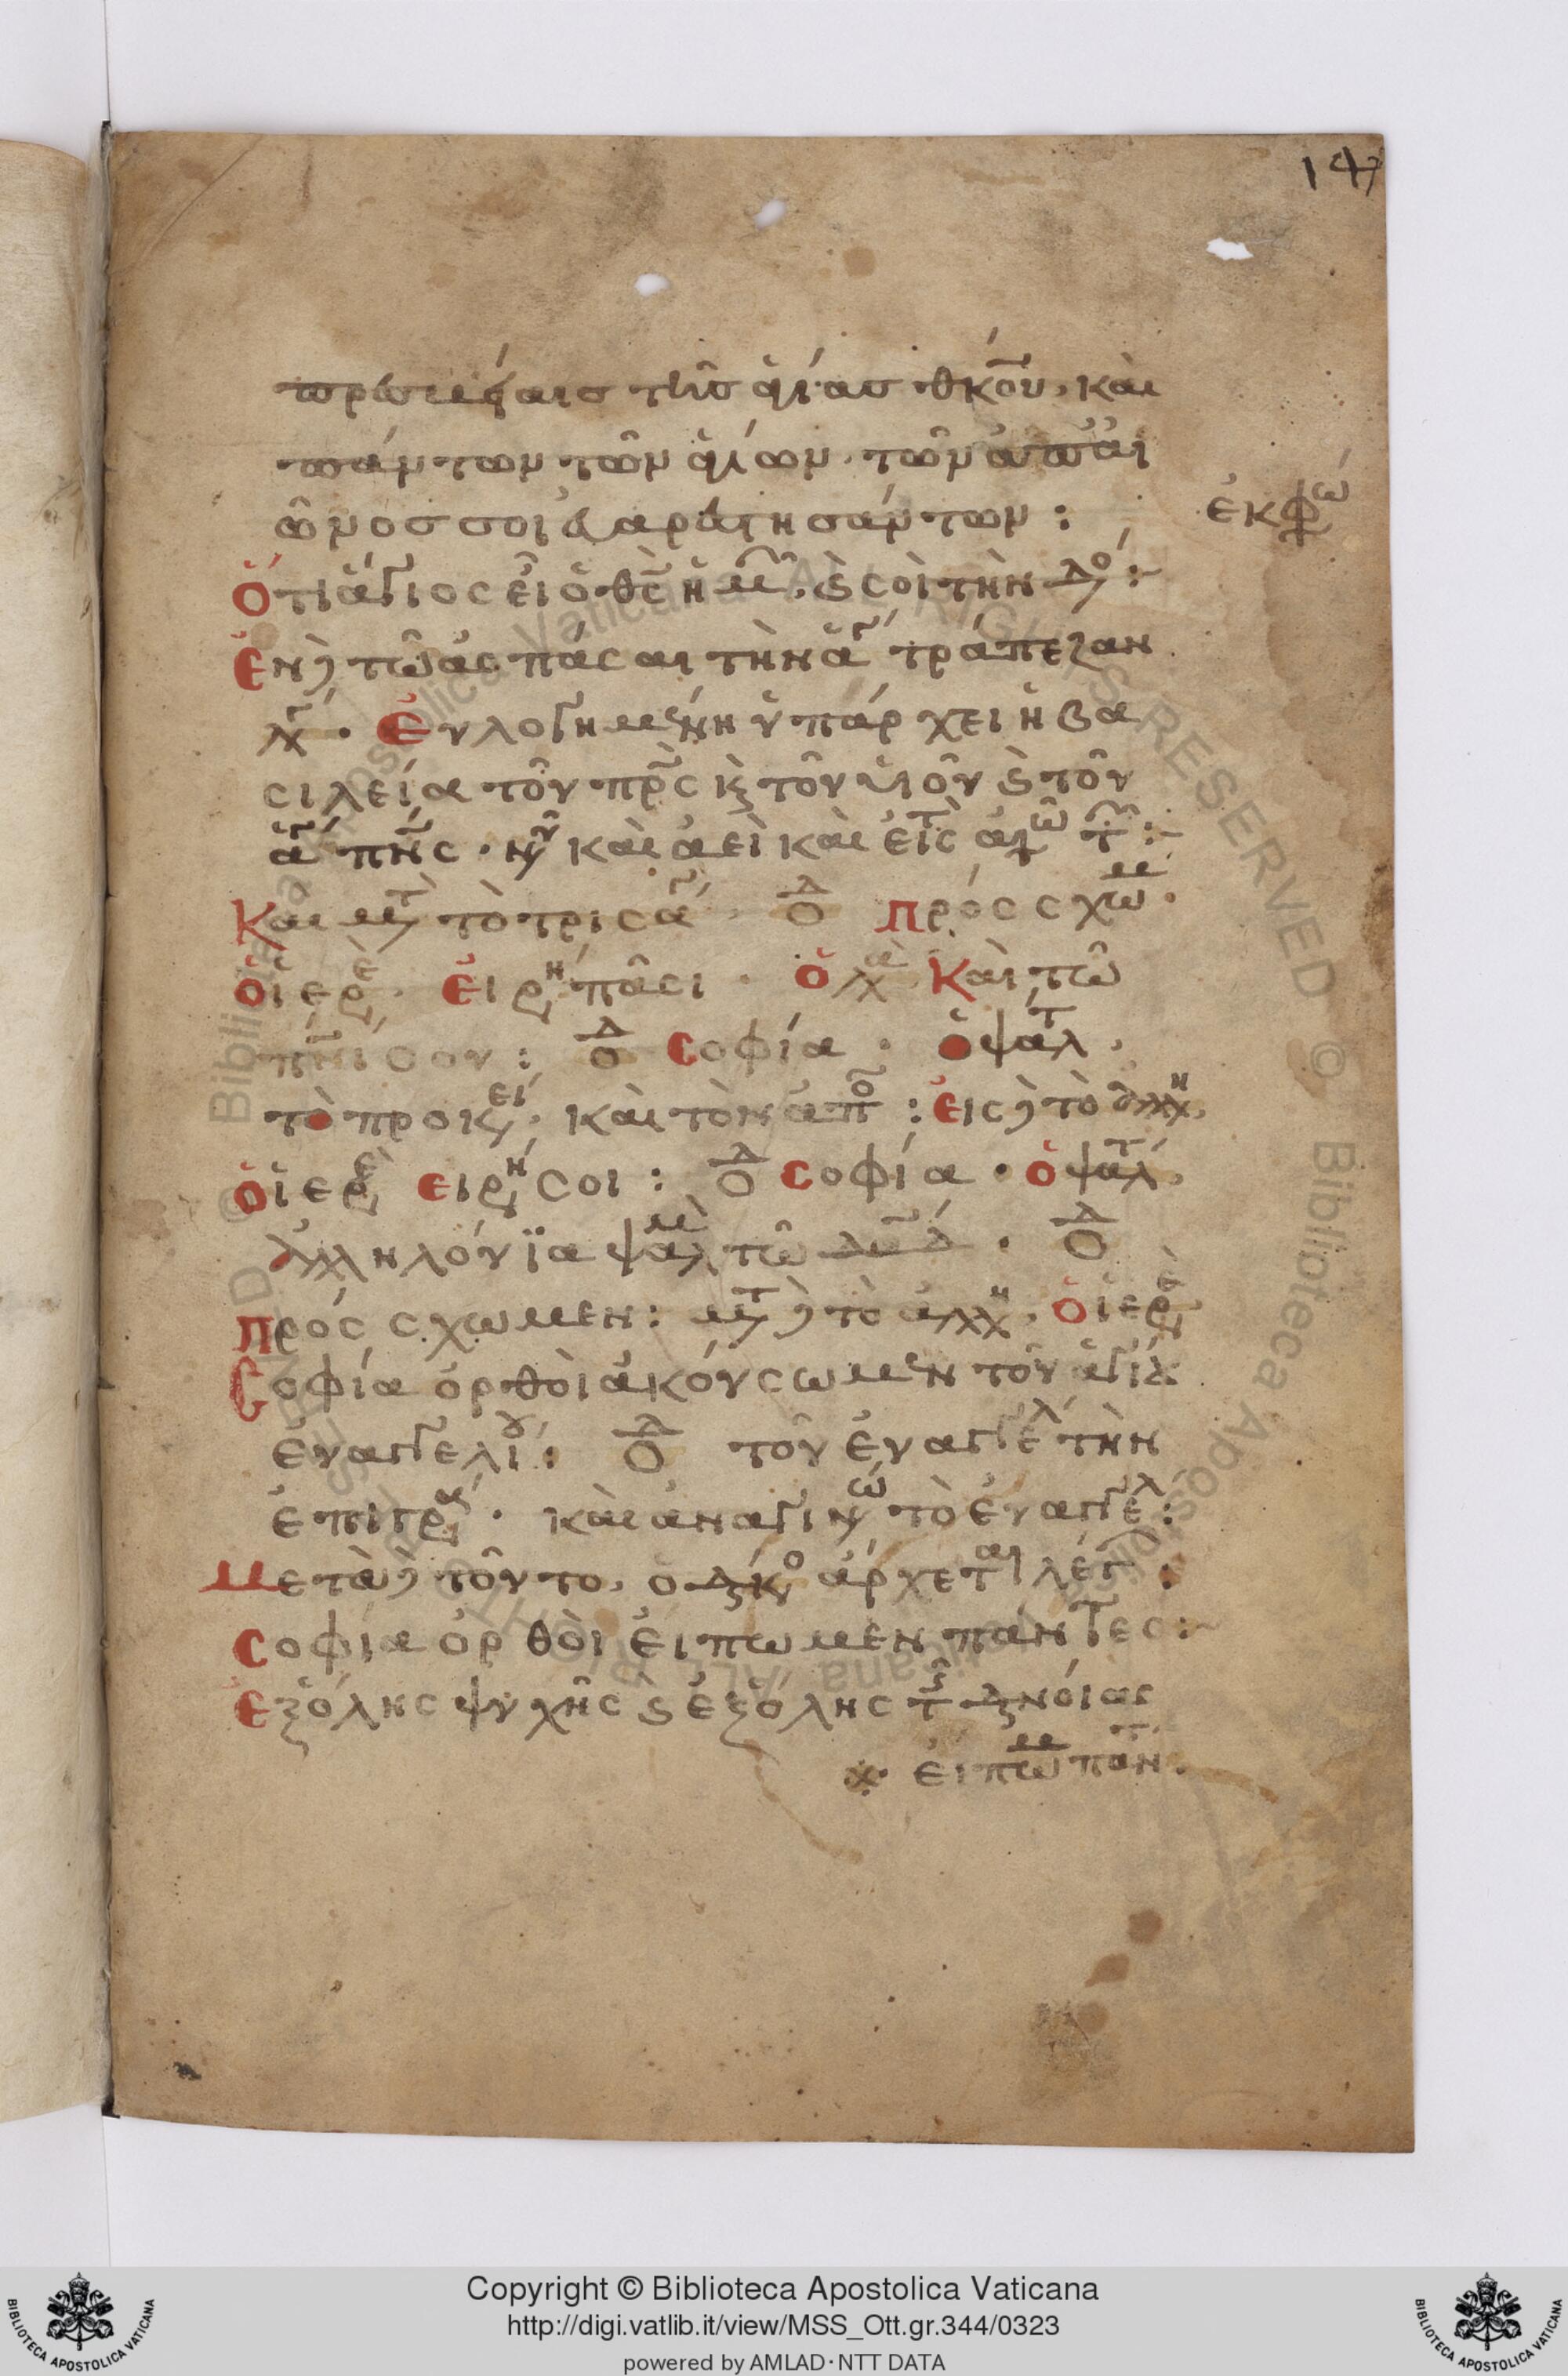 147
πρεσβείαις τῆς ἁγίας θκ͂ου, καὶ
πάντων τῶν ἁγίων, τῶν ἀπ' αἰ
ῶνος σοι εὐαρεστησάντων :
ἐκφώ
Ὅτι ἅγιος εἶ ὁ θς̀ ἡμ͂, ϗ σοὶ τὴν δό :
Ἐν τῶ ἀσπάσαι τὴν ἁγ͂ τράπεζαν
λγ͂ · Εὐλογημένη ὑπάρχει ἡ βα
σιλεία τοῦ πρ͂ς ϗ τοῦ υἱοῦ ϗ τοῦ
ἁγ͂ πν͂ς · νῦ καὶ ἀεὶ καὶ εἰς τ αἰῶ τ͂ :
Καὶ μετ τὸ τρισάγ͂ · ὁ Δ Πρόσχωμ ·
Ὁ ἱερὲ · Εἰρή πᾶσι · ὁ λα Καὶ τῶ
πν͂ί σου : ὁ Δ Σοφία · ὁ ψάλτ ·
τὸ προκεί · καὶ τὸν ἀπο : εἰς τὸ ἀλλη ·
ὁ ἱερὲ εἰρή σοι : ὁ Δ Σοφία · ὁ ψάλτ ·
ἀλληλούϊα ψαλμ τῶ δᾶδ · ὁ Δ
Πρόσχωμεν : μετ τὸ ἀλλη · ὁ ἱερὲ
Σοφία ὀρθοὶ ἀκούσωμεν τοῦ ἁγίου
εὐαγγελίου : ὁ Δ τοῦ εὐαγγελ τὴν
ἐπιγρα · καὶ ἀναγινώ τὸ εὐαγγέλ :
Μετὰ τοῦτο, ὁ διάκο ἄρχεται λέγ͂ :
Σοφία ὀρθοὶ εἴπωμεν πάντες :
Ἐξ ὅλης ψυχῆς ϗ ἐξ ὅλης τῆς διανοίας
εἴπωμ πάντ ·
Copyright © Biblioteca Apostolica Vaticana
http://digi.vatlib.it/view/MSS_Ott.gr.344/0323
powered by AMLAD·NTT DATA